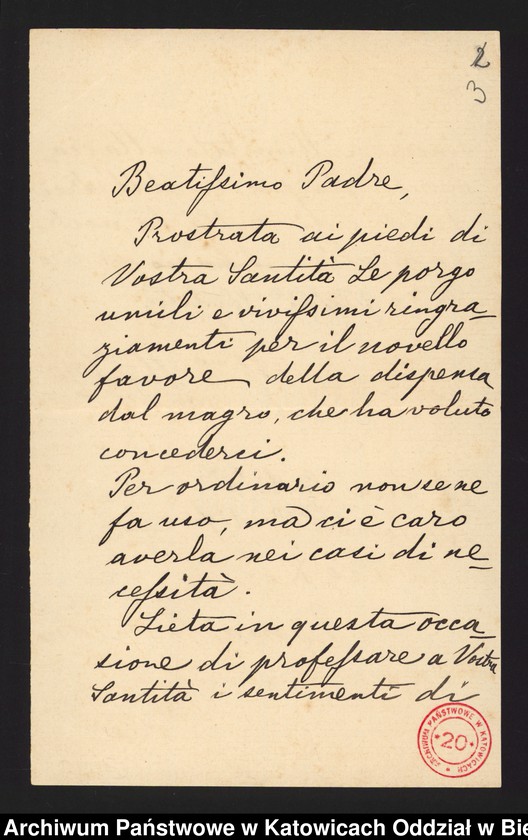 2
3
Beatiſsimo Padre,
Prostrata ai piedi di
Vostra Santità Le porgo
umili e viviſsimi ringra-
ziamenti per il novello
favore della dispensa
dal magro, che ha voluto
concederci.
Per ordinario non se ne
fa uso, ma ci è caro
averla nei casi di ne-
ceſsità.
Lieta in questa occa-
sione di profeſsare a Vostra
Santità i sentimenti di
ARCHIWUM PAŃSTWOWE W KATOWICACH
20
Archiwum Państwowe w Katowicach Oddział w Bie